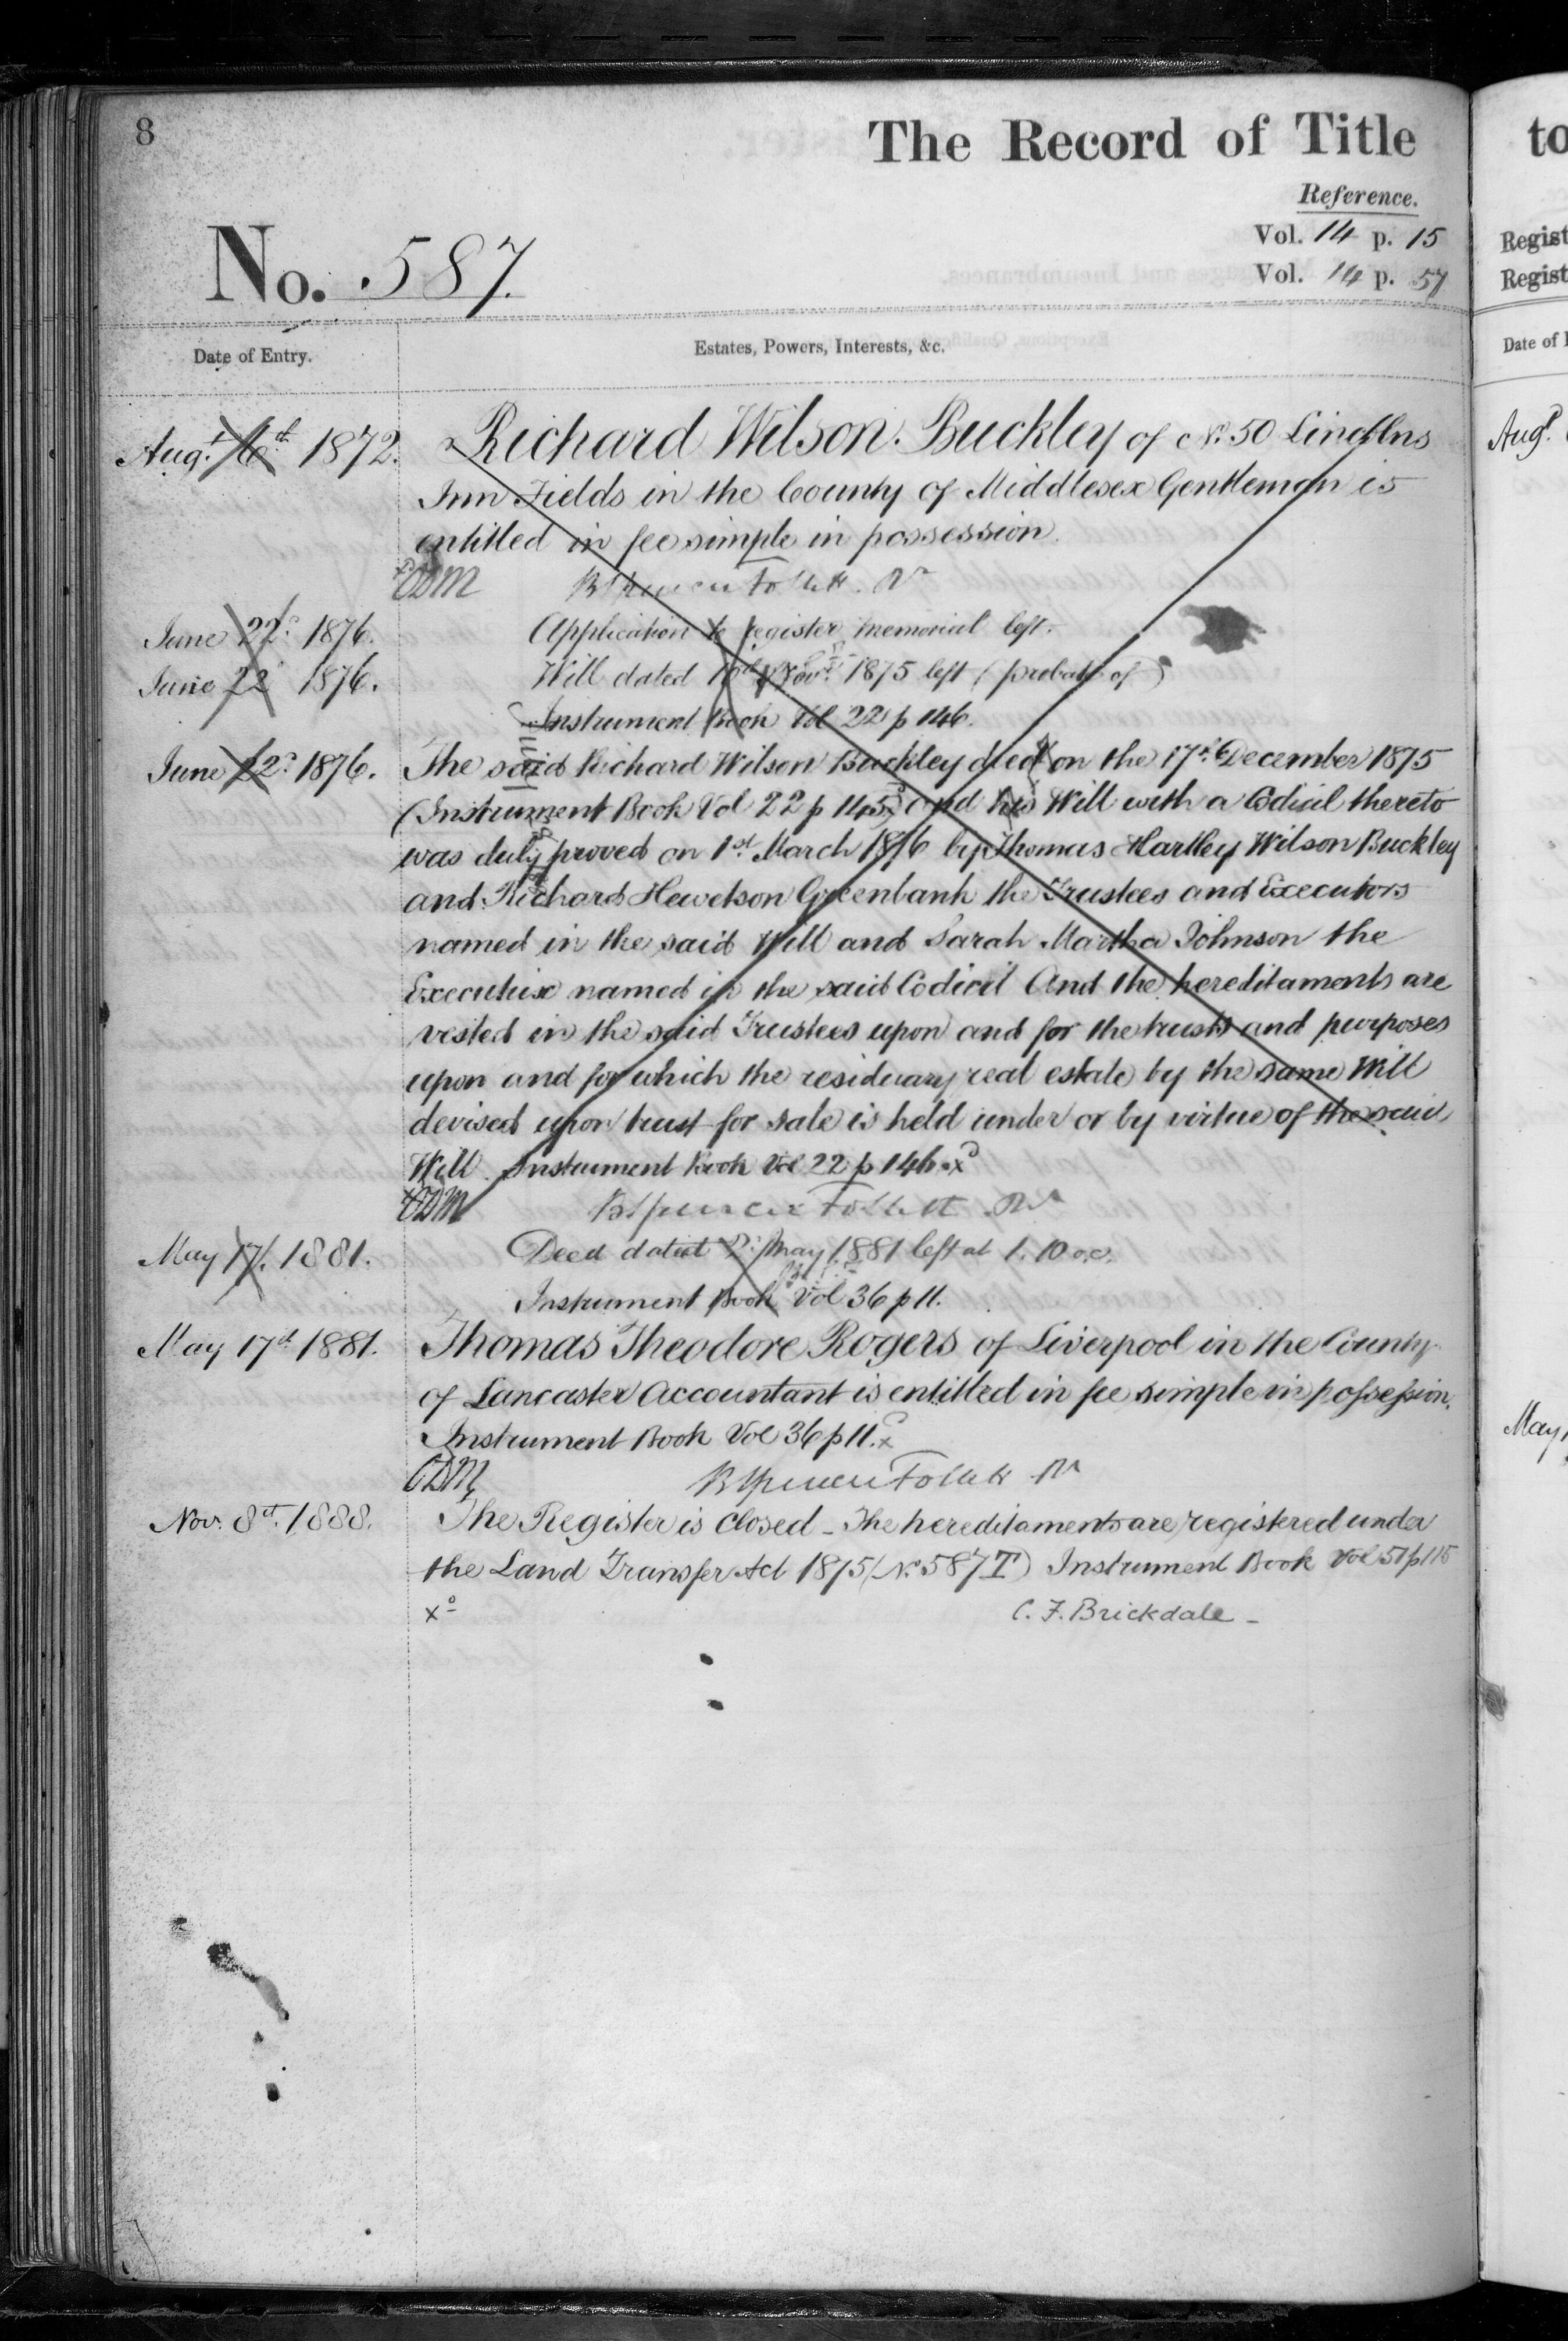 8
The Record of Title
Reference.
Vol. 14 p. 15
Vol. 14 p. 57
No. 587.
Date of Entry.
Estates, Powers, Interests, &c.
Augt. 6th 1872. Richard Wilson Buckley of No. 50 Lincolns
Inn Fields in the County of Middlesex Gentleman is
entitled in fee simple in possession.
EDM B Spencer Follett. Rr
June 22d. 1876. Application to register memorial left.
June 22 1876. Will dated Novr. 1875 left (probate of)
Instrument Book Vol 22 p 146.
June 22d. 1876. The said Richard Wilson Buckley died on the 17th December 1875
(Instrument Book Vol 22 p 145) and his Will with a Codicil thereto
was duly proved on 1st March 1876 by Thomas Hartley Wilson Buckley
and Richard Hewetson Greenbank the Trustees and Executors
named in the said Will and Sarah Martha Johnson the
Executrix named in the said Codicil And the hereditaments are
vested in the said Trustees upon and for the trusts and purposes
upon and for which the residuary real estate by the same Will
devised upon trust for sale is held under or by virtue of the said
Will. Instrument Book Vol 22 p 146. xd
EDM B Spencer Follett Rr
May 17. 1881. Deed dated May 1881 left at 1.10 o.c.
Instrument Book Vol 36 p 11.
May 17th 1881. Thomas Theodore Rogers of Liverpool in the County
of Lancaster Accountant is entitled in fee simple in possession.
Instrument Book Vol 36 p 11. xd
EDM B Spencer Follett Rr
Nov. 8th. 1888. The Register is closed - The hereditaments are registered under
the Land Transfer Act 1875 (No. 587T) Instrument Book Vol 51 p 115
xd C. F. Brickdale -
to
Regist
Regist
Date of
Augt.
May